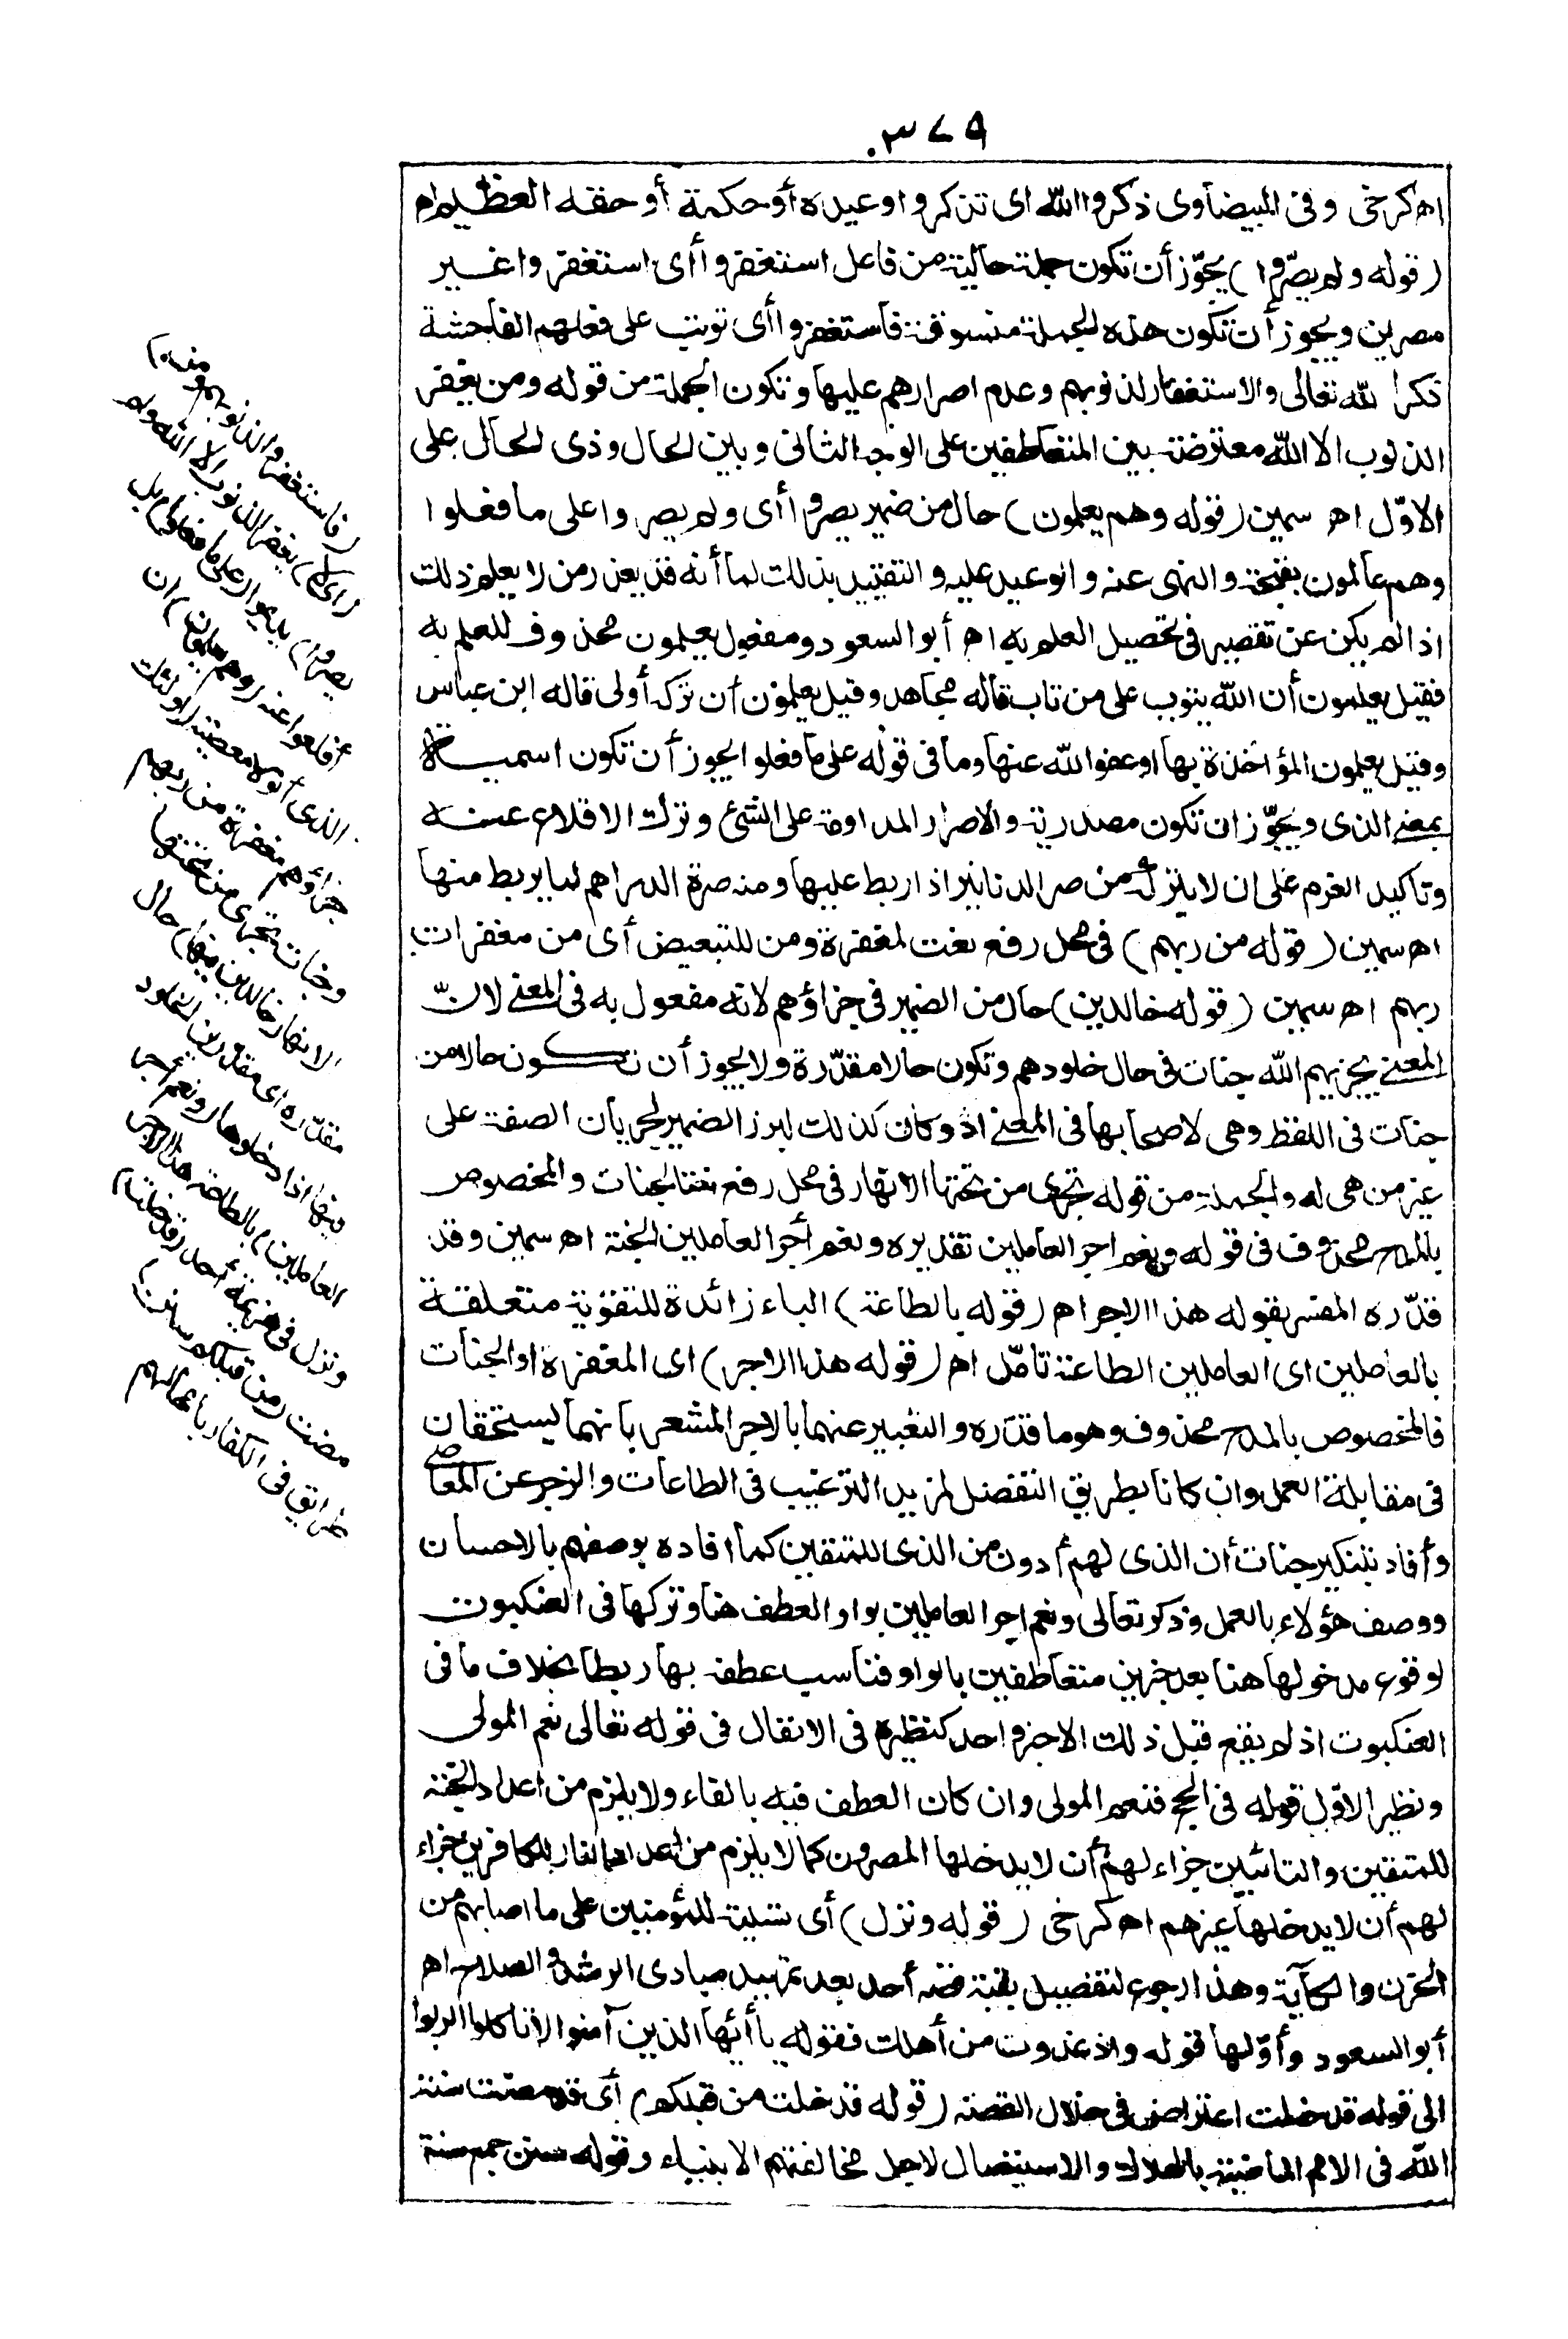 ٣٧٩
اه كرخى وفى البيضاوى ذكروا الله اى تذكروا وعيده أو حكمه أو حقه العظيم اه
(قوله ولم يصروا) يجوّز أن تكون جملة حالية من فاعل استغفروا أى استغفروا غير
مصرين ويجوز أن تكون هذه الجملة منسوقة فاستغفروا أى ترتب على فعلهم الفاحشة
ذكر الله تعالى والاستغفار لذنوبهم وعدم اصرارهم عليها وتكون الجملة من قوله ومن يغفر
الذنوب الا الله معترضة بين المتعاطفين على الوجه الثانى وبين الحال وذى الحال على
الاوّل اه سمين (قوله وهم يعلمون) حال من ضمير يصروا أى ولم يصروا على ما فعلوا
وهم عالمون بقبحه والنهى عنه والوعيد عليه والتقييد بذلك لما أنه قد يعذر من لا يعلم ذلك
اذا لم يكن عن تقصير فى تحصيل العلم به اه أبو السعود ومفعول يعلمون محذوف للعلم به
فقيل يعلمون أن الله يتوب على من تاب قاله مجاهد وقيل يعلمون أن تركه أولى قاله ابن عباس
وقيل يعلمون المؤاخذة بها او عفو الله عنها وما فى قوله على ما فعلوا يجوز أن تكون اسمية
بمعنى الذى ويجوّز ان تكون مصدرية والاصرار المداومة على الشئ وترك الاقلاع عنه
وتاكيد العزم على ان لا يتركه من صر الدنانير اذا ربط عليها ومنه صرة الدراهم لما يربط منها
اه سمين (قوله من ربهم) فى محل رفع نعت لمغفرة ومن للتبعيض أى من مغفرات
ربهم اه سمين (قوله خالدين) حال من الضمير فى جزاؤهم لانه مفعول به فى المعنى لانّ
المعنى يجزيهم الله جنات فى حال خلودهم وتكون حالا مقدّرة ولا يجوز أن تكون حالا من
جنات فى اللفظ وهى لاصحابها فى المعنى اذ لو كان كذلك لبرز الضمير لجريان الصفة على
غير من هى له والجملة من قوله تجرى من تحتها الانهار فى محل رفع نعتا لجنات والمخصوص
بالمدح محذوف فى قوله ونعم اجر العاملين تقديره ونعم أجر العاملين الجنة اه سمين وقد
قدّره المفسر بقوله هذا الاجر اه (قوله بالطاعة) الباء زائدة للتقوية متعلقة
بالعاملين اى العاملين الطاعة تامّل اه (قوله هذا الاجر) اى المغفرة او الجنات
فالمخصوص بالمدح محذوف وهو ما قدّره والتعبير عنهما بالاجر المشعر بانهما يستحقان
فى مقابلة العمل وان كانا بطريق التفضل لمزيد الترغيب فى الطاعات والزجر عن المعاصى
وأفاد بتنكير جنات أن الذى لهم أدون من الذى للمتقين كما افاده بوصفهم بالاحسان
ووصف هؤلاء بالعمل وذكر تعالى ونعم اجر العاملين بواو العطف هنا وتركها فى العنكبوت
لوقوع مدخولها هنا بعد خبرين متعاطفين بالواو فناسب عطفه بها ربطا بخلاف ما فى
العنكبوت اذ لم يقع قبل ذلك الا خبر واحد كنظيره فى الانفال فى قوله تعالى نعم المولى
ونظير الاوّل قوله فى الحج فنعم المولى وان كان العطف فيه بالفاء ولا يلزم من اعداد الجنة
للمتقين والتائبين جزاء لهم أن لا يدخلها المصرون كما لا يلزم من اعداد النار للكافرين جزاء
لهم أن لا يدخلها غيرهم اه كرخى (قوله ونزل) أى تسلية للمؤمنين على ما اصابهم من
الحزن والكآبة وهذا رجوع لتفصيل بقية قصه أحد بعد تمهيد مبادى الرشد والصلاح اه
أبو السعود وأوّلها قوله واذ غدوت من أهلك فقوله يا أيها الذين آمنوا لا تاكلوا الربوا
الى قوله قد خلت اعتراض فى خلال القصة (قوله قد خلت من قبلكم) أى قد مضت سنة
الله فى الامم الماضية بالهلاك والاستئصال لاجل مخالفتهم الانبياء وقوله سنن جمع سنة
(فاستغفروا لذنوبهم ومن)
(اى لا) يغفر الذنوب الا الله ولم
يصروا) يداوموا (على ما فعلوا) بل
أقلعوا عنه (وهم يعلمون) ان
الذى أتوه معصية (اولئك
جزاؤهم مغفرة من ربهم
وجنات تجرى من تحتها
الانهار خالدين فيها) حال
مقدّرة اى مقدرين الخلود
فيها اذا دخلوها (ونعم أجر
العاملين) بالطاعة هذا الاجر
ونزل فى هزيمة أحد (قد خلت)
مضت (من قبلكم سنن)
طرائق فى الكفار بامهالهم